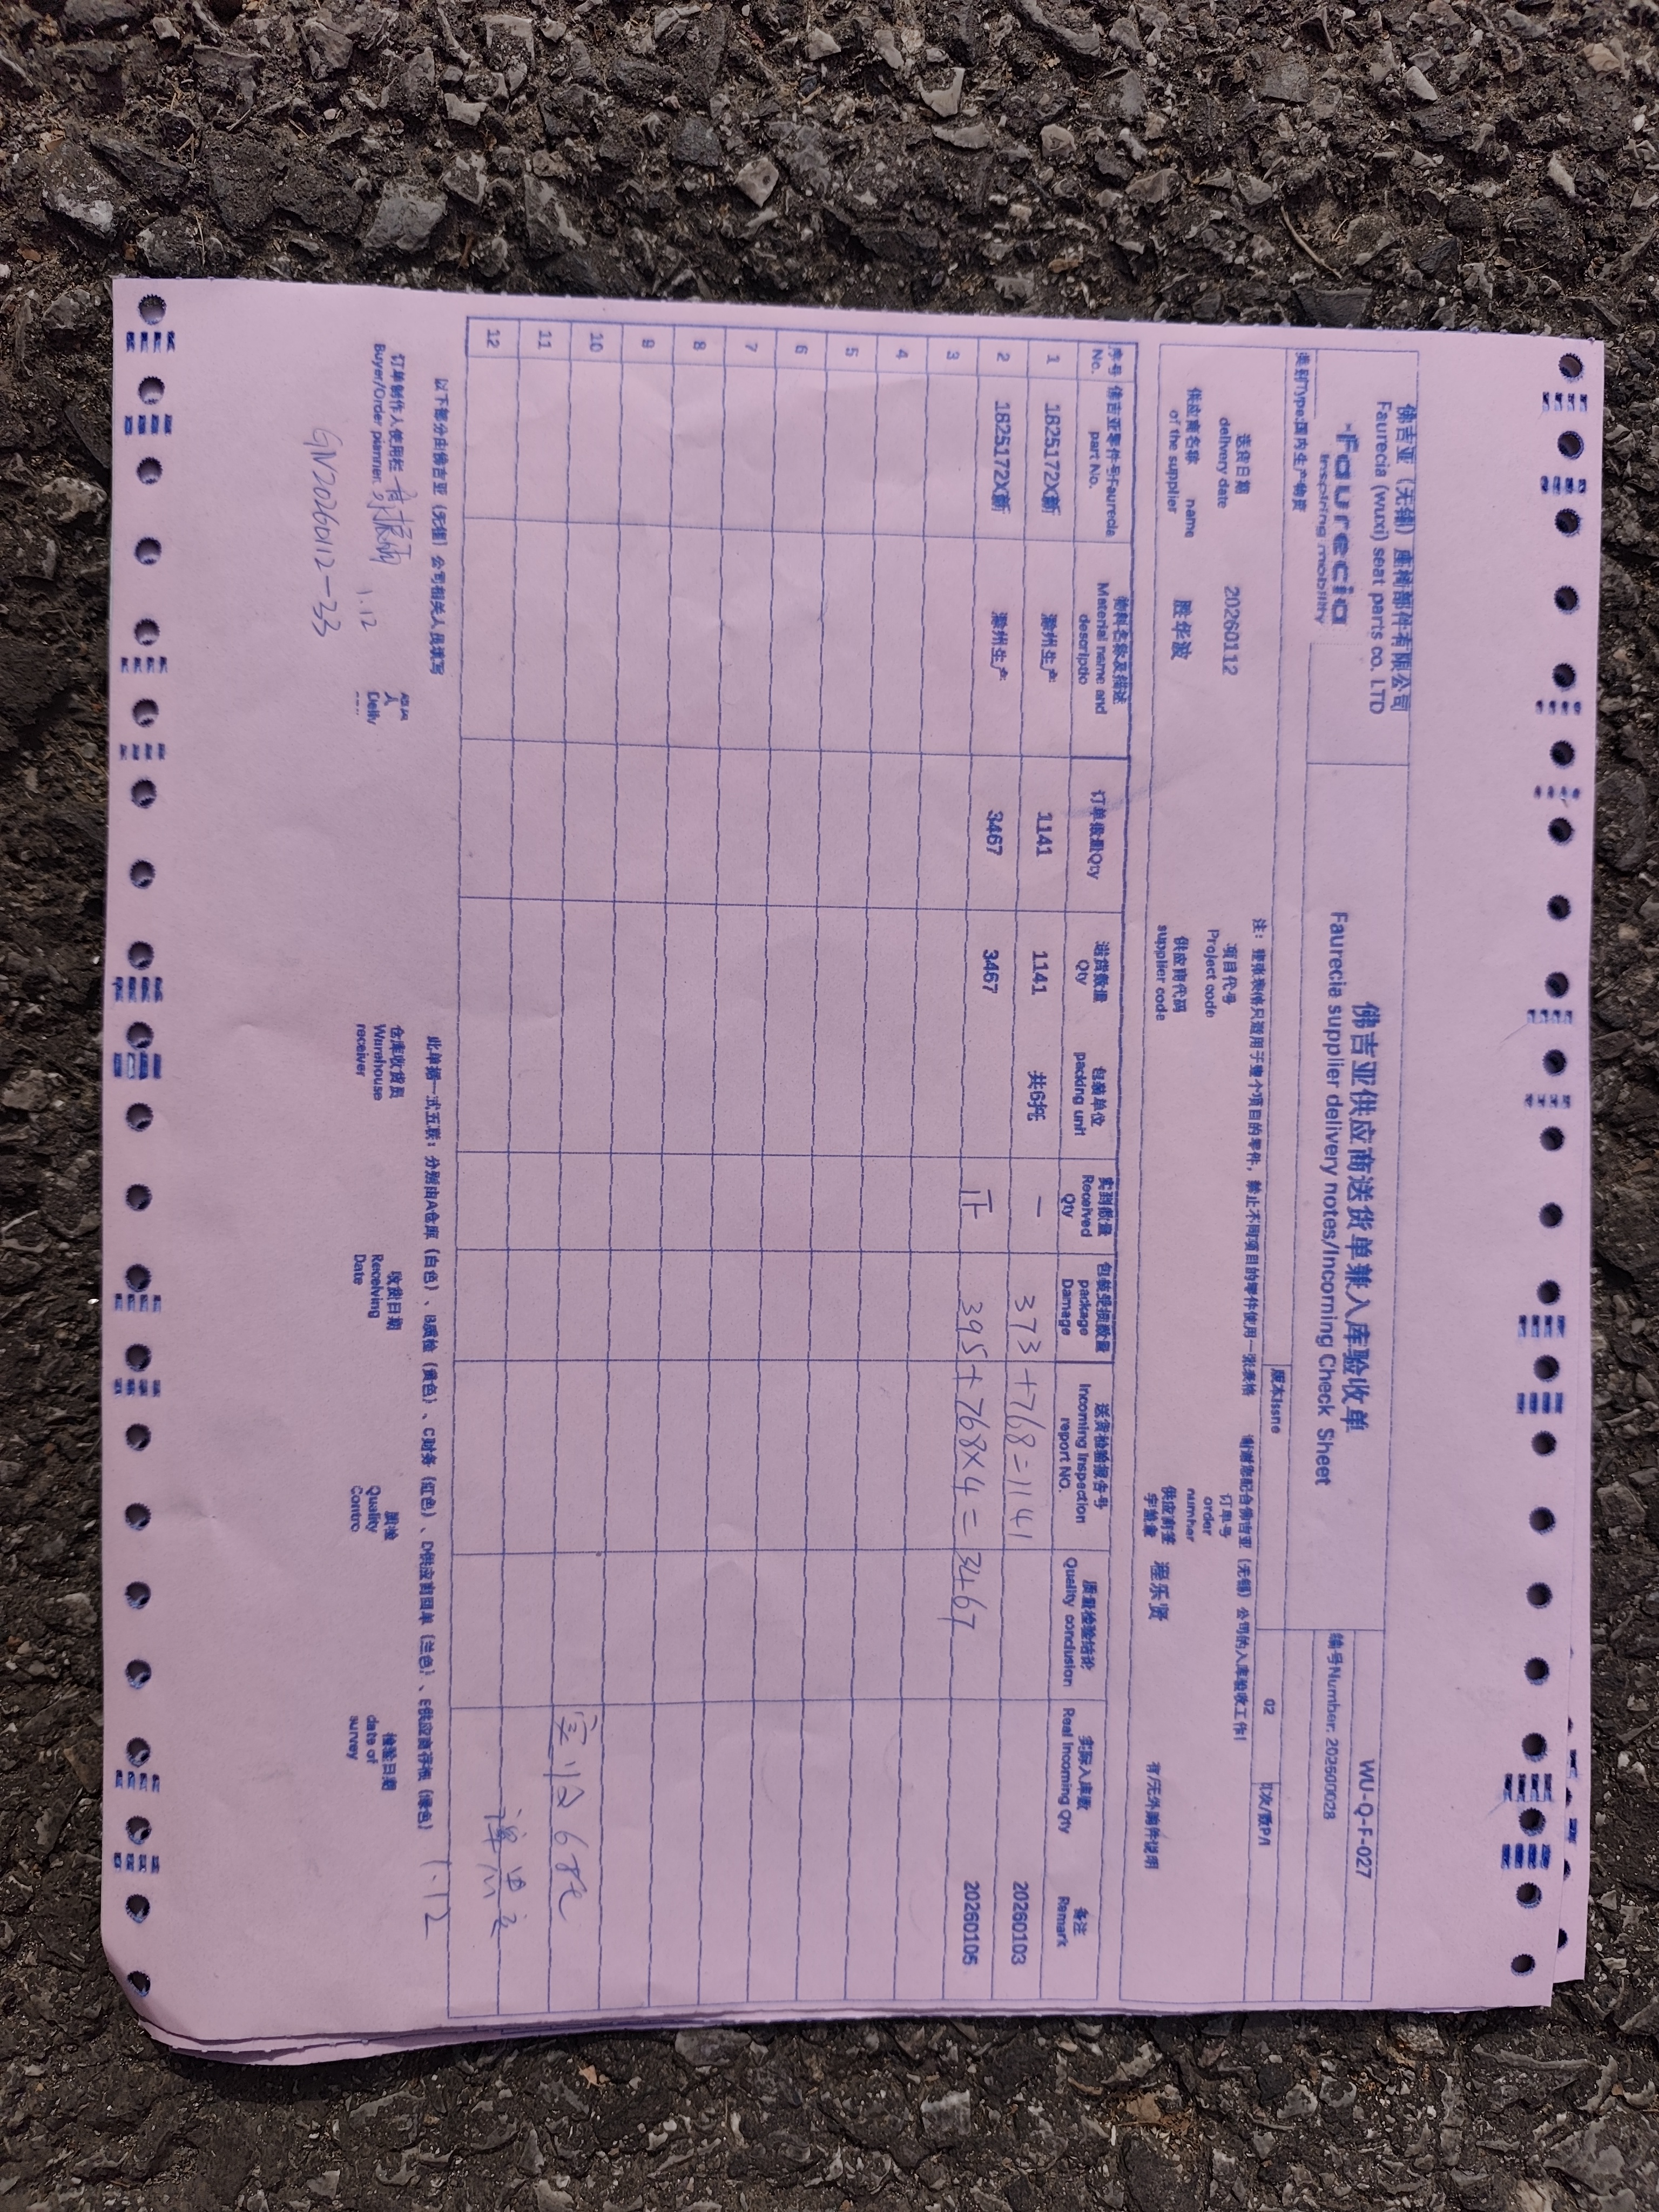 佛吉亚（无锡）座椅部件有限公司
Faurecia (wuxi) seat parts co. LTD
faurecia
inspiring mobility
佛吉亚供应商送货单兼入库验收单
Faurecia supplier delivery notes/Incoming Check Sheet
WU-Q-F-027
编号Number: 202600028
类别Type:国内生产物资
版本Issue
02
页次/数P/1
注：整张表格只适用于整个项目的零件，禁止不同项目的零件使用一张表格 谢谢您配合佛吉亚（无锡）公司的入库验收工作！
送货日期 delivery date 20260112
项目代号 Project code
订单号 order number
供应商名称 name of the supplier 胜华波
供应商代码 supplier code
供应商签字 程乐贤
有/无外箱件说明
序号 No. 佛吉亚零件号Faurecia part No. 物料名称及描述 Material name and descriptio 订单数量Qty 送货数量 Qty 包装单位 packing unit 实到数量 Received Qty 包装受损数量 package Damage 送货检验报告号 Incoming inspection report NO. 质量检验结论 Quality conclusion 实际入库数 Real Incoming Qty 备注 Remark
1 1825172X新 滁州生产 1141 1141 共6托 一 373+768=1141 20260103
2 1825172X新 滁州生产 3467 3467 正 395+768×4=3467 20260105
3
4
5
6
7
8
9
10
11 实收6托
12
以下部分由佛吉亚（无锡）公司相关人员填写
此单据一式五联：分别由A仓库（白色）、B质检（黄色）、C财务（红色）、D供应商回单（兰色）、E供应商存根（绿色）
1.12
订单制作人使用栏 Buyer/Order planner: 1.12
人 Deliv
仓库收货员 Warehouse receiver
收货日期 Receiving Date
质检 Quality Contro
检验日期 date of survey
GN20260112-33